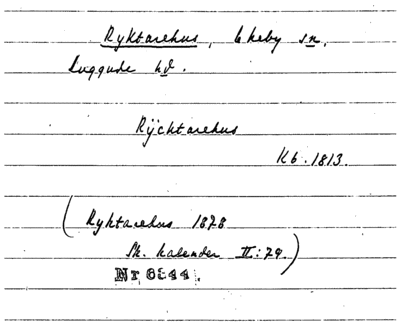 Ryktarehus, Ekeby sn.
Luggude hd.
Rÿcktarehus
Kb. 1813.
(Ryktarehus 1878
Sk. kalender II:79.)
Nr 6344.